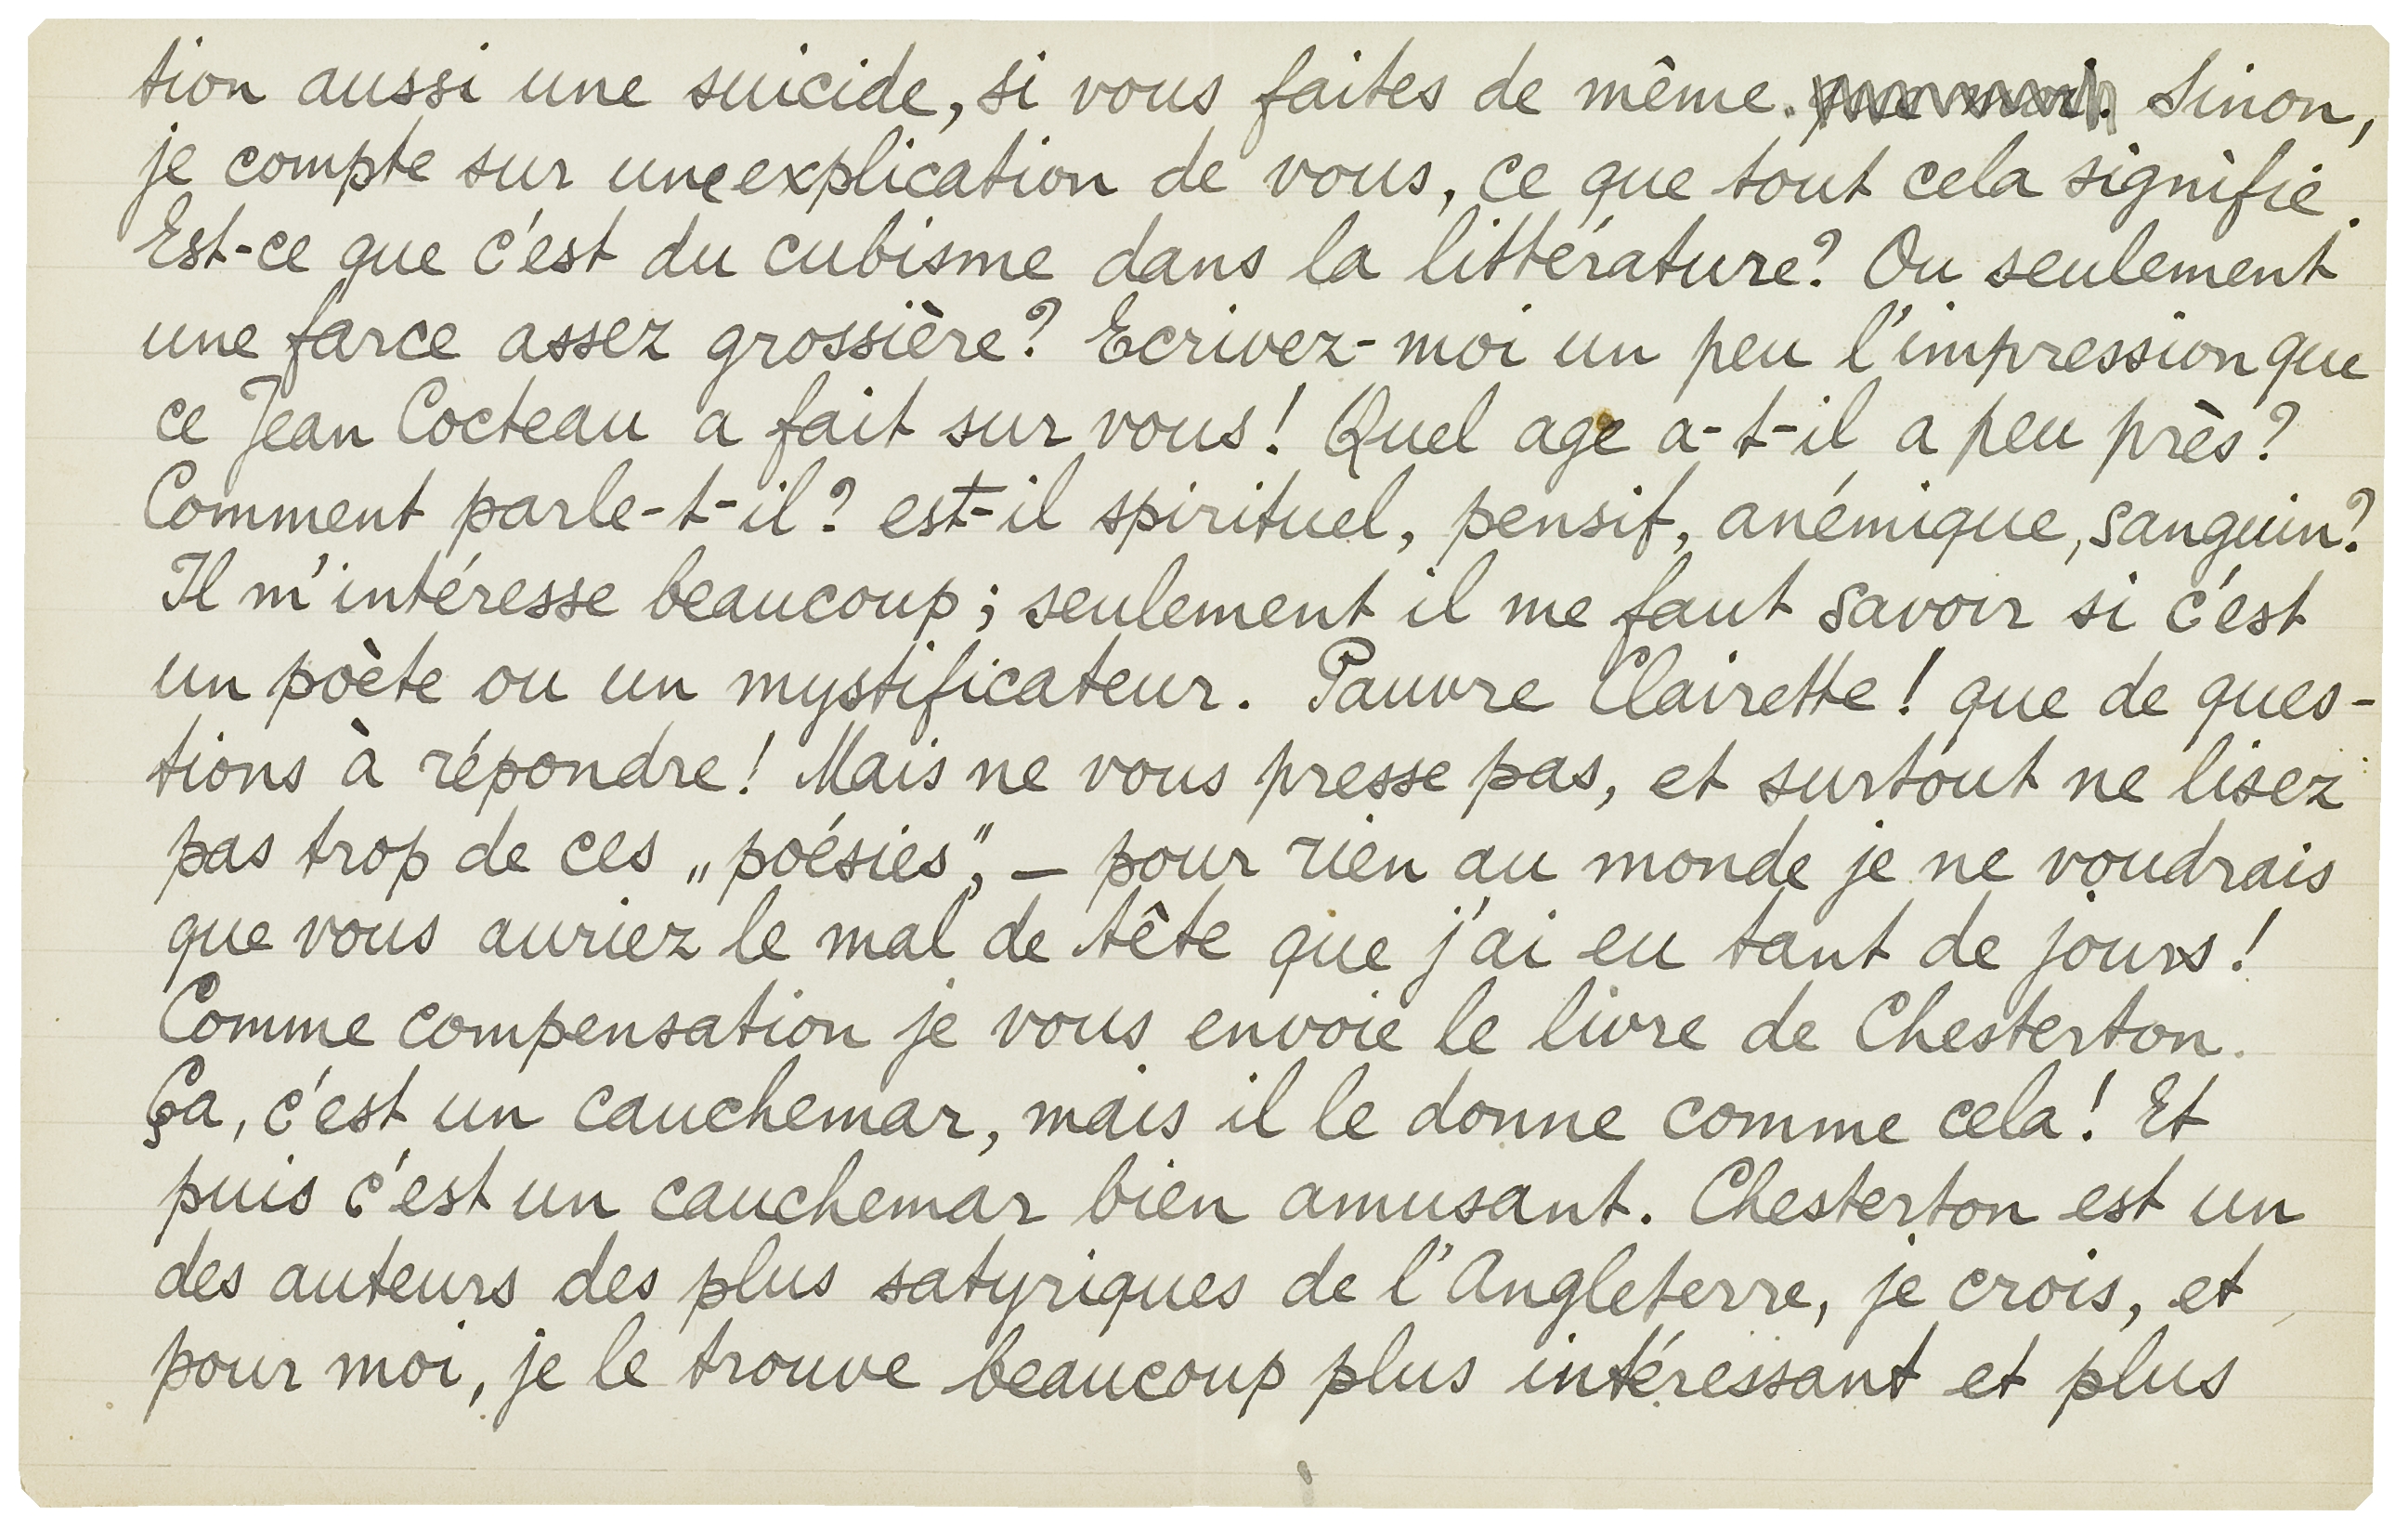 tion aussi une suicide, si vous faites de même. Sinon,
je compte sur une explication de vous, ce que tout cela signifie.
Est-ce que c'est du cubisme dans la littérature? Ou seulement
une farce assez grossière? Ecrivez-moi un peu l'impression que
ce Jean Cocteau a fait sur vous! Quel age a-t-il a peu près?
Comment parle-t-il? est-il spirituel, pensif, anémique, sanguin?
Il m'intéresse beaucoup; seulement il me faut savoir si c'est
un poète ou un mystificateur. Pauvre Clairette! que de ques-
tions à répondre! Mais ne vous presse pas, et surtout ne lisez
pas trop de ces „poésies", — pour rien au monde je ne voudrais
que vous auriez le mal de tête que j'ai eu tant de jours!
Comme compensation je vous envoie le livre de Chesterton.
Ça, c'est un cauchemar, mais il le donne comme cela! Et
puis c'est un cauchemar bien amusant. Chesterton est un
des auteurs des plus satyriques de l'Angleterre, je crois, et
pour moi, je le trouve beaucoup plus intéressant et plus